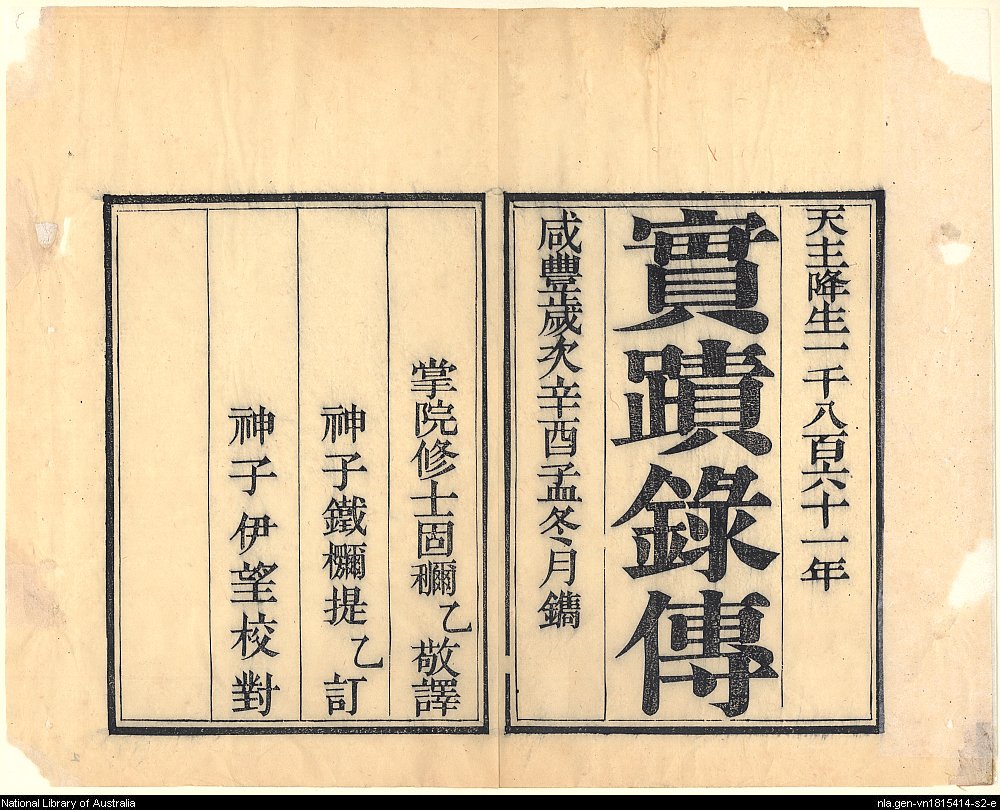 天主降生一千八百六十一年
實蹟錄傳
咸豐歲次辛酉孟冬月鐫
掌院修士固穪乙敬譯
神子鐵檷提乙訂
神子伊望校對
National Library of Australia
nla.gen-vn1815414-s2-e